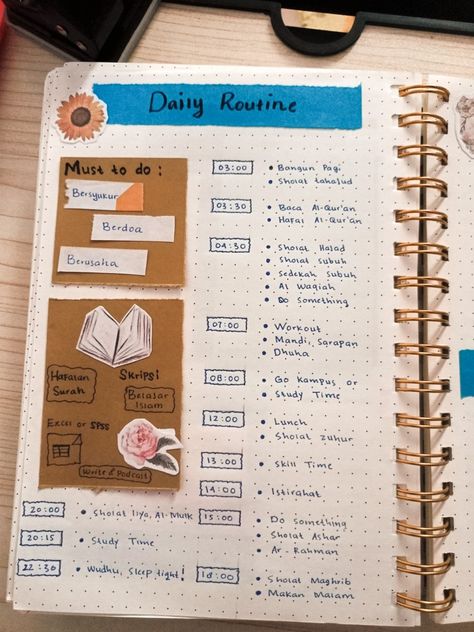 Daily Routine
Must to do :
Bersyukur
Berdoa
Berusaha
Hafalan
Surah
Skripsi
Belajar
Islam
Excel or SPSS
Write & Podcast
03:00
• Bangun Pagi
• Sholat tahajud
03:30
• Baca Al-Qur'an
• Hafal Al-Qur'an
04:30
• Sholat Hajad
• Sholat Subuh
• Sedekah Subuh
• Al Waqiah
• Do Something
07:00
• Workout
• Mandi, Sarapan
• Dhuka
08:00
• Go Kampus or
• Study Time
12:00
• Lunch
• Sholat zuhur
13:00
• Skill Time
14:00
• Istirahat
15:00
• Do Something
• Sholat Ashar
• Ar-Rahman
18:00
• Sholat Maghrib
• Makan Malam
20:00
• Sholat Isya, Al-Mulk
20:15
• Study Time
22:30
• Wudhu, Sleep tight!